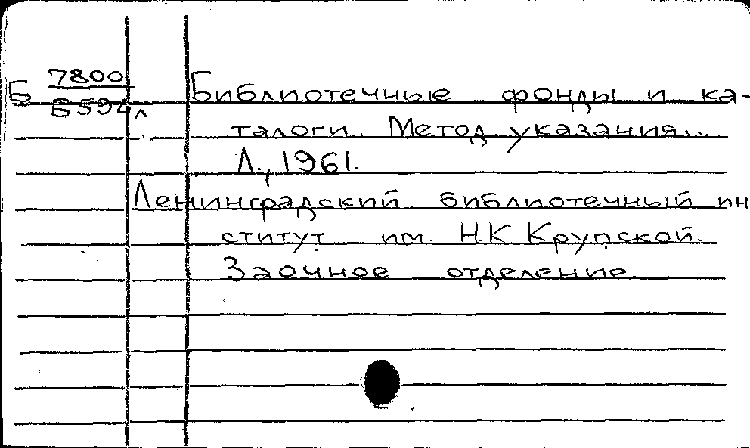 Б 7800
Б594л
Библиотечные фонды и ка-
талоги. Метод. указания...
Л., 1961.
Ленинградский библиотечный ин
ститут им. Н.К Крупской.
Заочное отделение